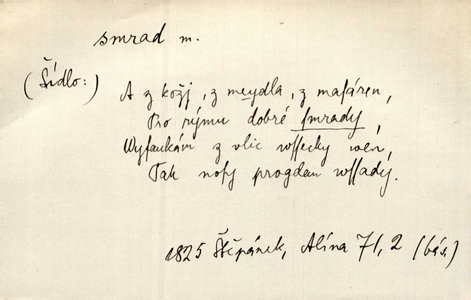 smrad m.
(Šídlo:)
A z kožj, z meydla, z masáren,
Pro rýmu dobré smrady,
Wyfaukám z vlic wssecky wen,
Tak nosy progdau wssady.
1825 Štěpánek, Alína 71, 2 (bás.)